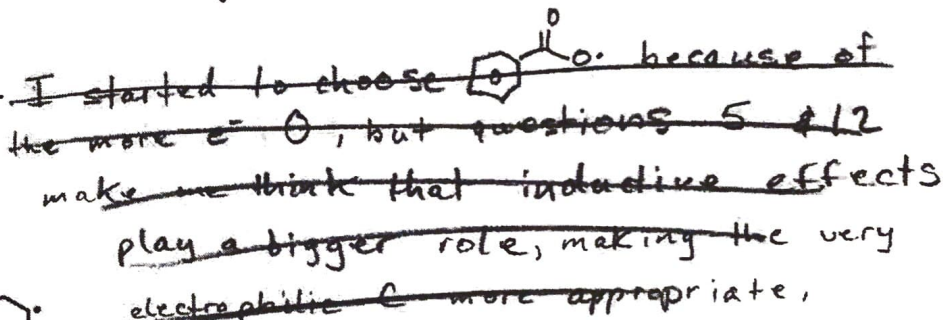 I started to choose O O· because of
the more e⁻ ⊖, but questions 5 & 12
make me think that inductive effects
play a bigger role, making the very
electrophilic C more appropriate,